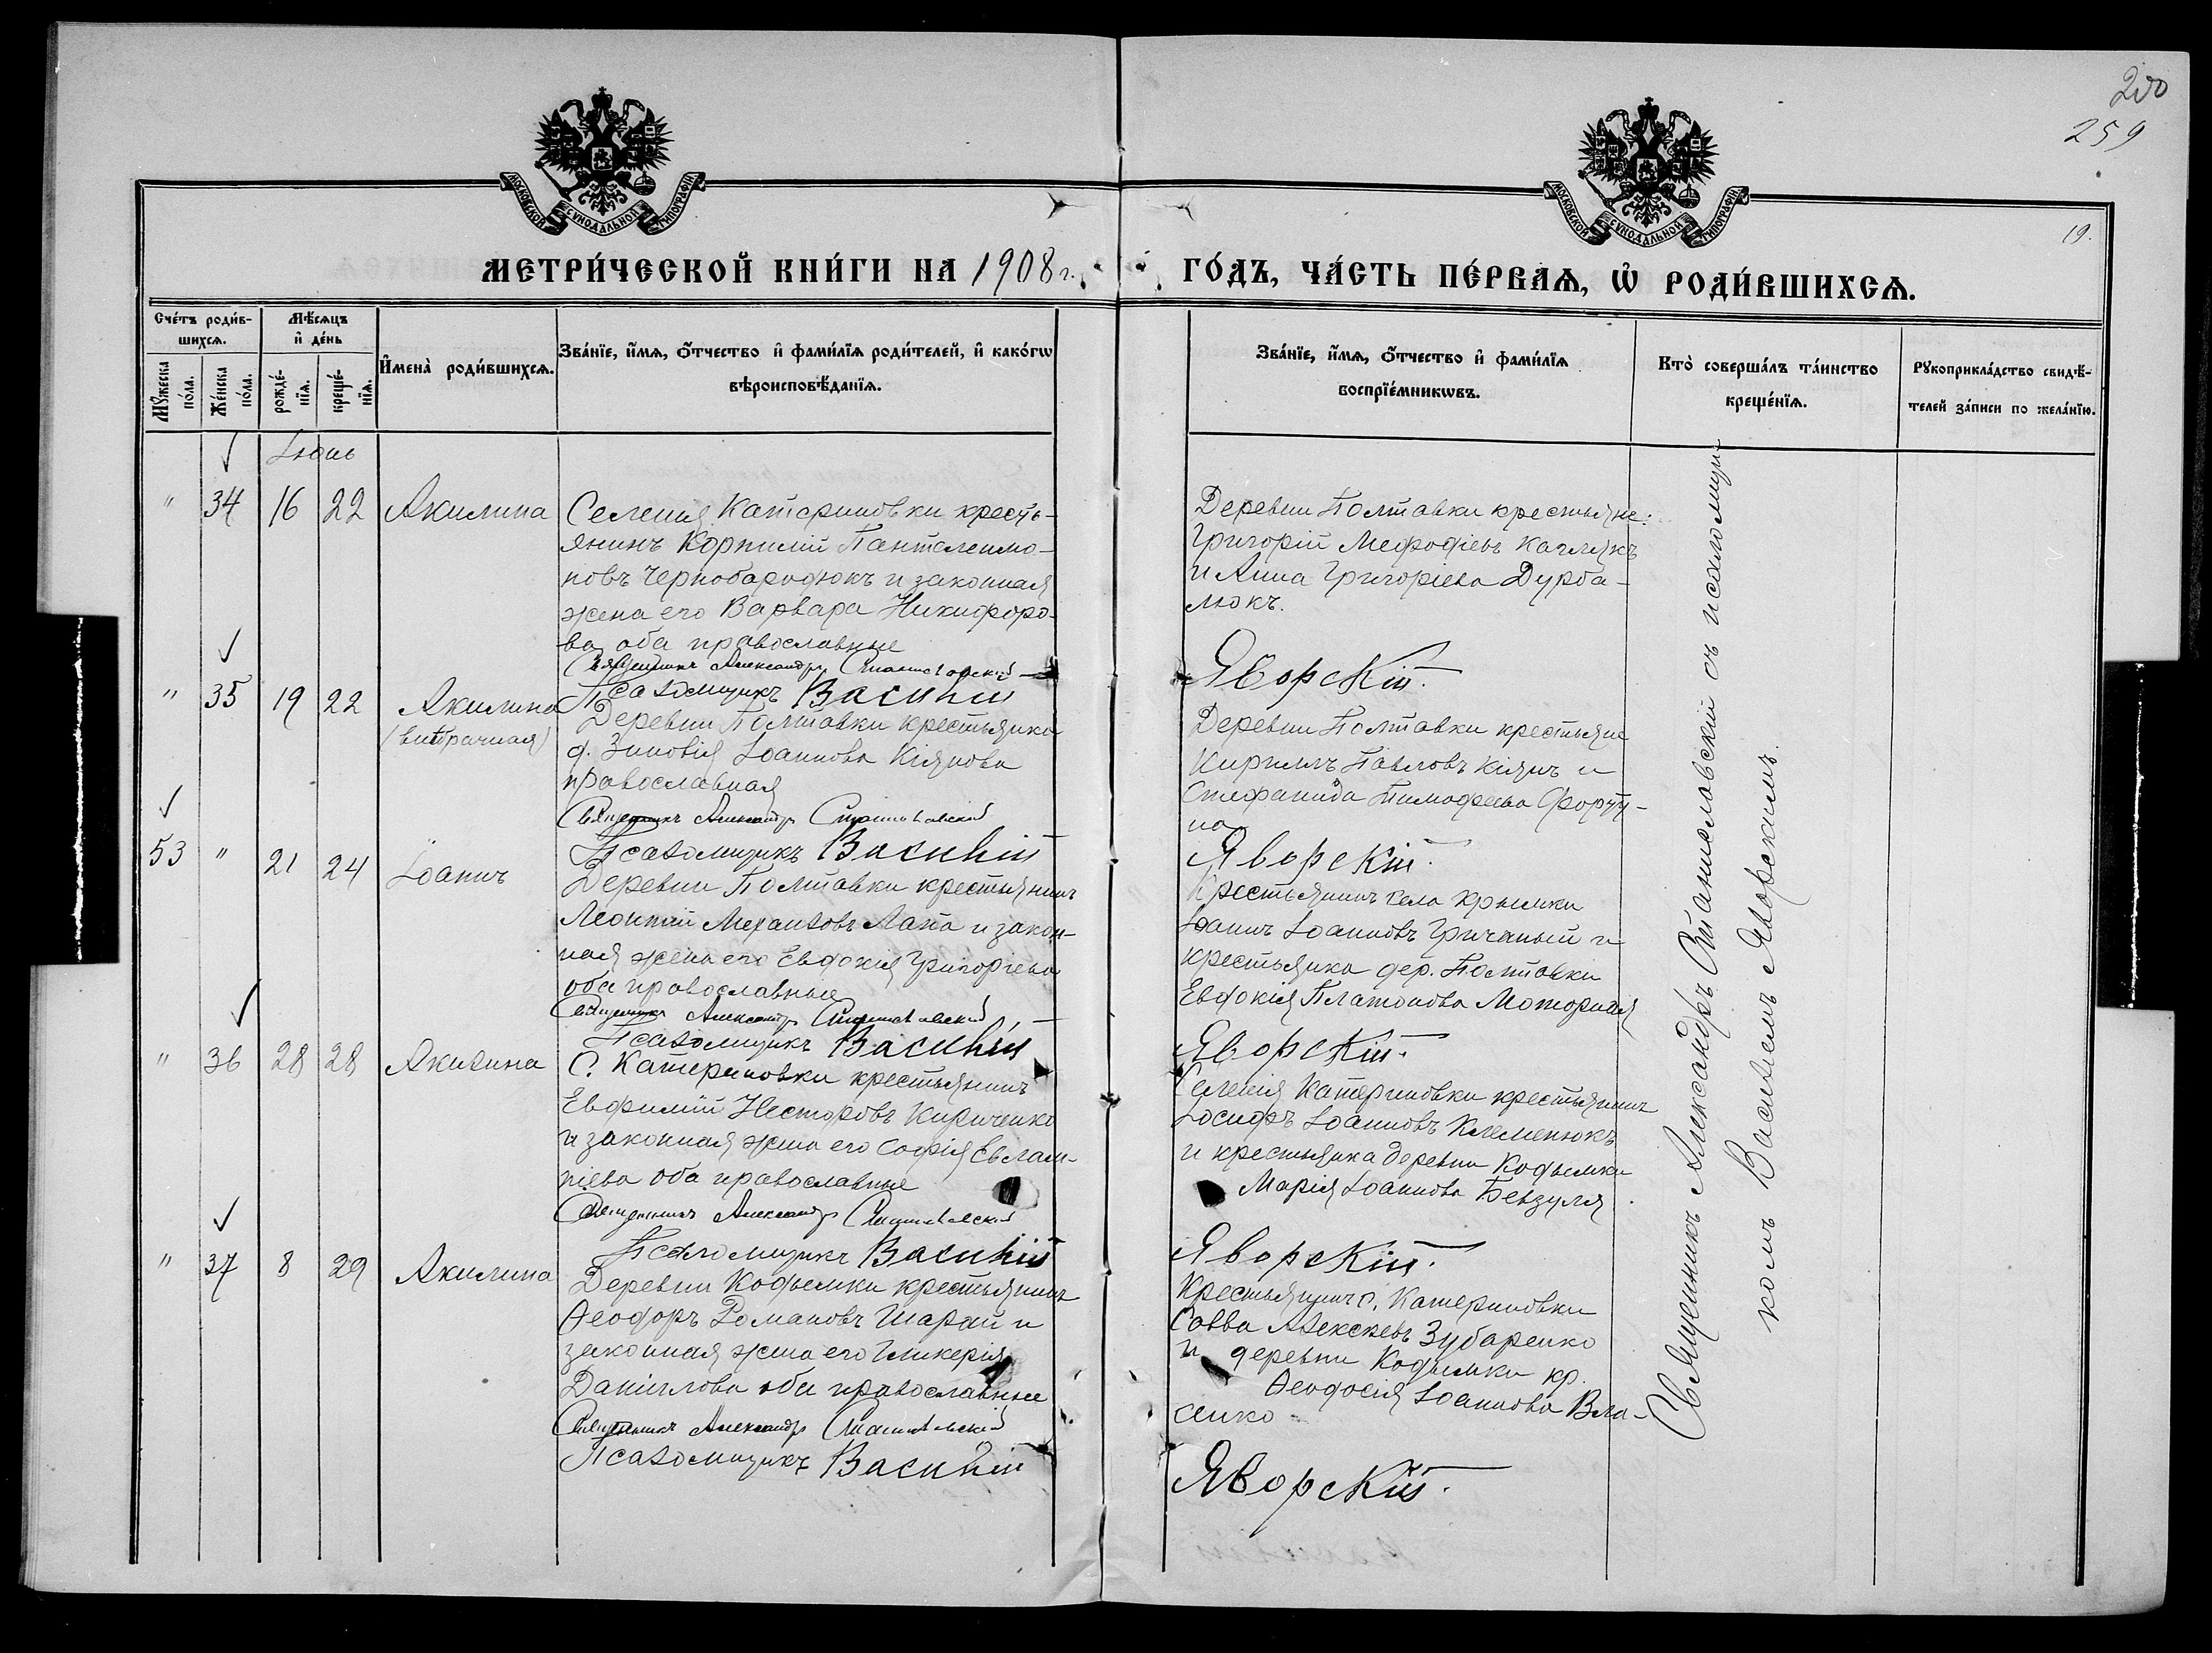 200
259
19.
МОСКОВСКОЙ СѴНОДАЛЬНОЙ ТИПОГРАФІИ
МОСКОВСКОЙ СѴНОДАЛЬНОЙ ТИПОГРАФІИ
МЕТРИ́ЧЕСКОЙ КНИ́ГИ НА 1908 г.
ГО́ДЪ, ЧА́СТЬ ПЕ́РВАѦ, Ѡ҆ РОДИ́ВШИХСѦ.
Сче́тъ роди́в-
шихсѧ.
Мѣ́сѧцъ
и҆ де́нь
Мꙋ́жеска
по́ла.
Же́нска
по́ла.
рожде́-
нїѧ.
креще́-
нїѧ.
И҆мена̀ роди́вшихсѧ.
Зва́нїе, и҆́мѧ, ѻ҆́тчество и҆ фами́лїѧ роди́телей, и҆ како́гѡ
вѣроисповѣ́данїѧ.
Зва́нїе, и҆́мѧ, ѻ҆́тчество и҆ фами́лїѧ
воспрїе́мникѡвъ.
Кто̀ соверша́лъ та́инство
креще́нїѧ.
Рꙋкоприкла́дство свидѣ́-
телей за́писи по жела́нїю.
Іюнь
" 34 16 22 Акилина
Селенія Катериновки кресть-
янинъ Корнилій Пантелеимо-
новъ Чернобародюкъ и законная
жена его Варвара Никифоро-
ва оба православные
Священникъ Александръ Станиславскій
Псаломщикъ Василій
Деревни Полтавки крестьяне:
Григорій Мефодіевъ Каглякъ
и Анна Григоріева Дурба-
люкъ.
Яворскій.
" 35 19 22 Акилина
(внѣбрачная)
Деревни Полтавки крестьянка
д. Зиновія Іоаннова Кіянова
православная
Священникъ Александръ Станиславскій
Псаломщикъ Василій
Деревни Полтавки крестьяне
Кириллъ Павловъ Кіянъ и
Стефанида Тимофеева Форту-
на
Яворскій.
53 " 21 24 Іоаннъ
Деревни Полтавки крестьянинъ
Леонтій Михаиловъ Лапа и закон-
ная жена его Евдокія Григоріева
оба православные
Священникъ Александръ Станиславскій
Псаломщикъ Василій
Крестьянинъ села Крымки
Іоаннъ Іоанновъ Гричаный и
крестьянка дер. Полтавки
Евдокія Платонова Моторная
Яворскій.
" 36 28 28 Акилина
С. Катериновки крестьянинъ
Евфимій Несторовъ Кириченко
и законная жена его Софія Евлам-
піева оба православные
Священникъ Александръ Станиславскій
Псаломщикъ Василій
Селенія Катериновки крестьянинъ
Іосифъ Іоанновъ Клеменюкъ
и крестьянка деревни Кодымки
Марія Іоаннова Бевзуля
Яворскій.
" 37 8 29 Акилина
Деревни Кодымки крестьянинъ
Ѳеодоръ Романовъ Шарай и
законная жена его Гликерія
Даніилова оба православные
Священникъ Александръ Станиславскій
Псаломщикъ Василій
Крестьянинъ с. Катериновки
Савва Алексѣевъ Зубаренко
и деревни Кодымки кр.
Ѳеодосія Іоаннова Вла-
сенко
Яворскій.
Священникъ Александръ Станиславскій съ псаломщи-
комъ Василіемъ Яворскимъ